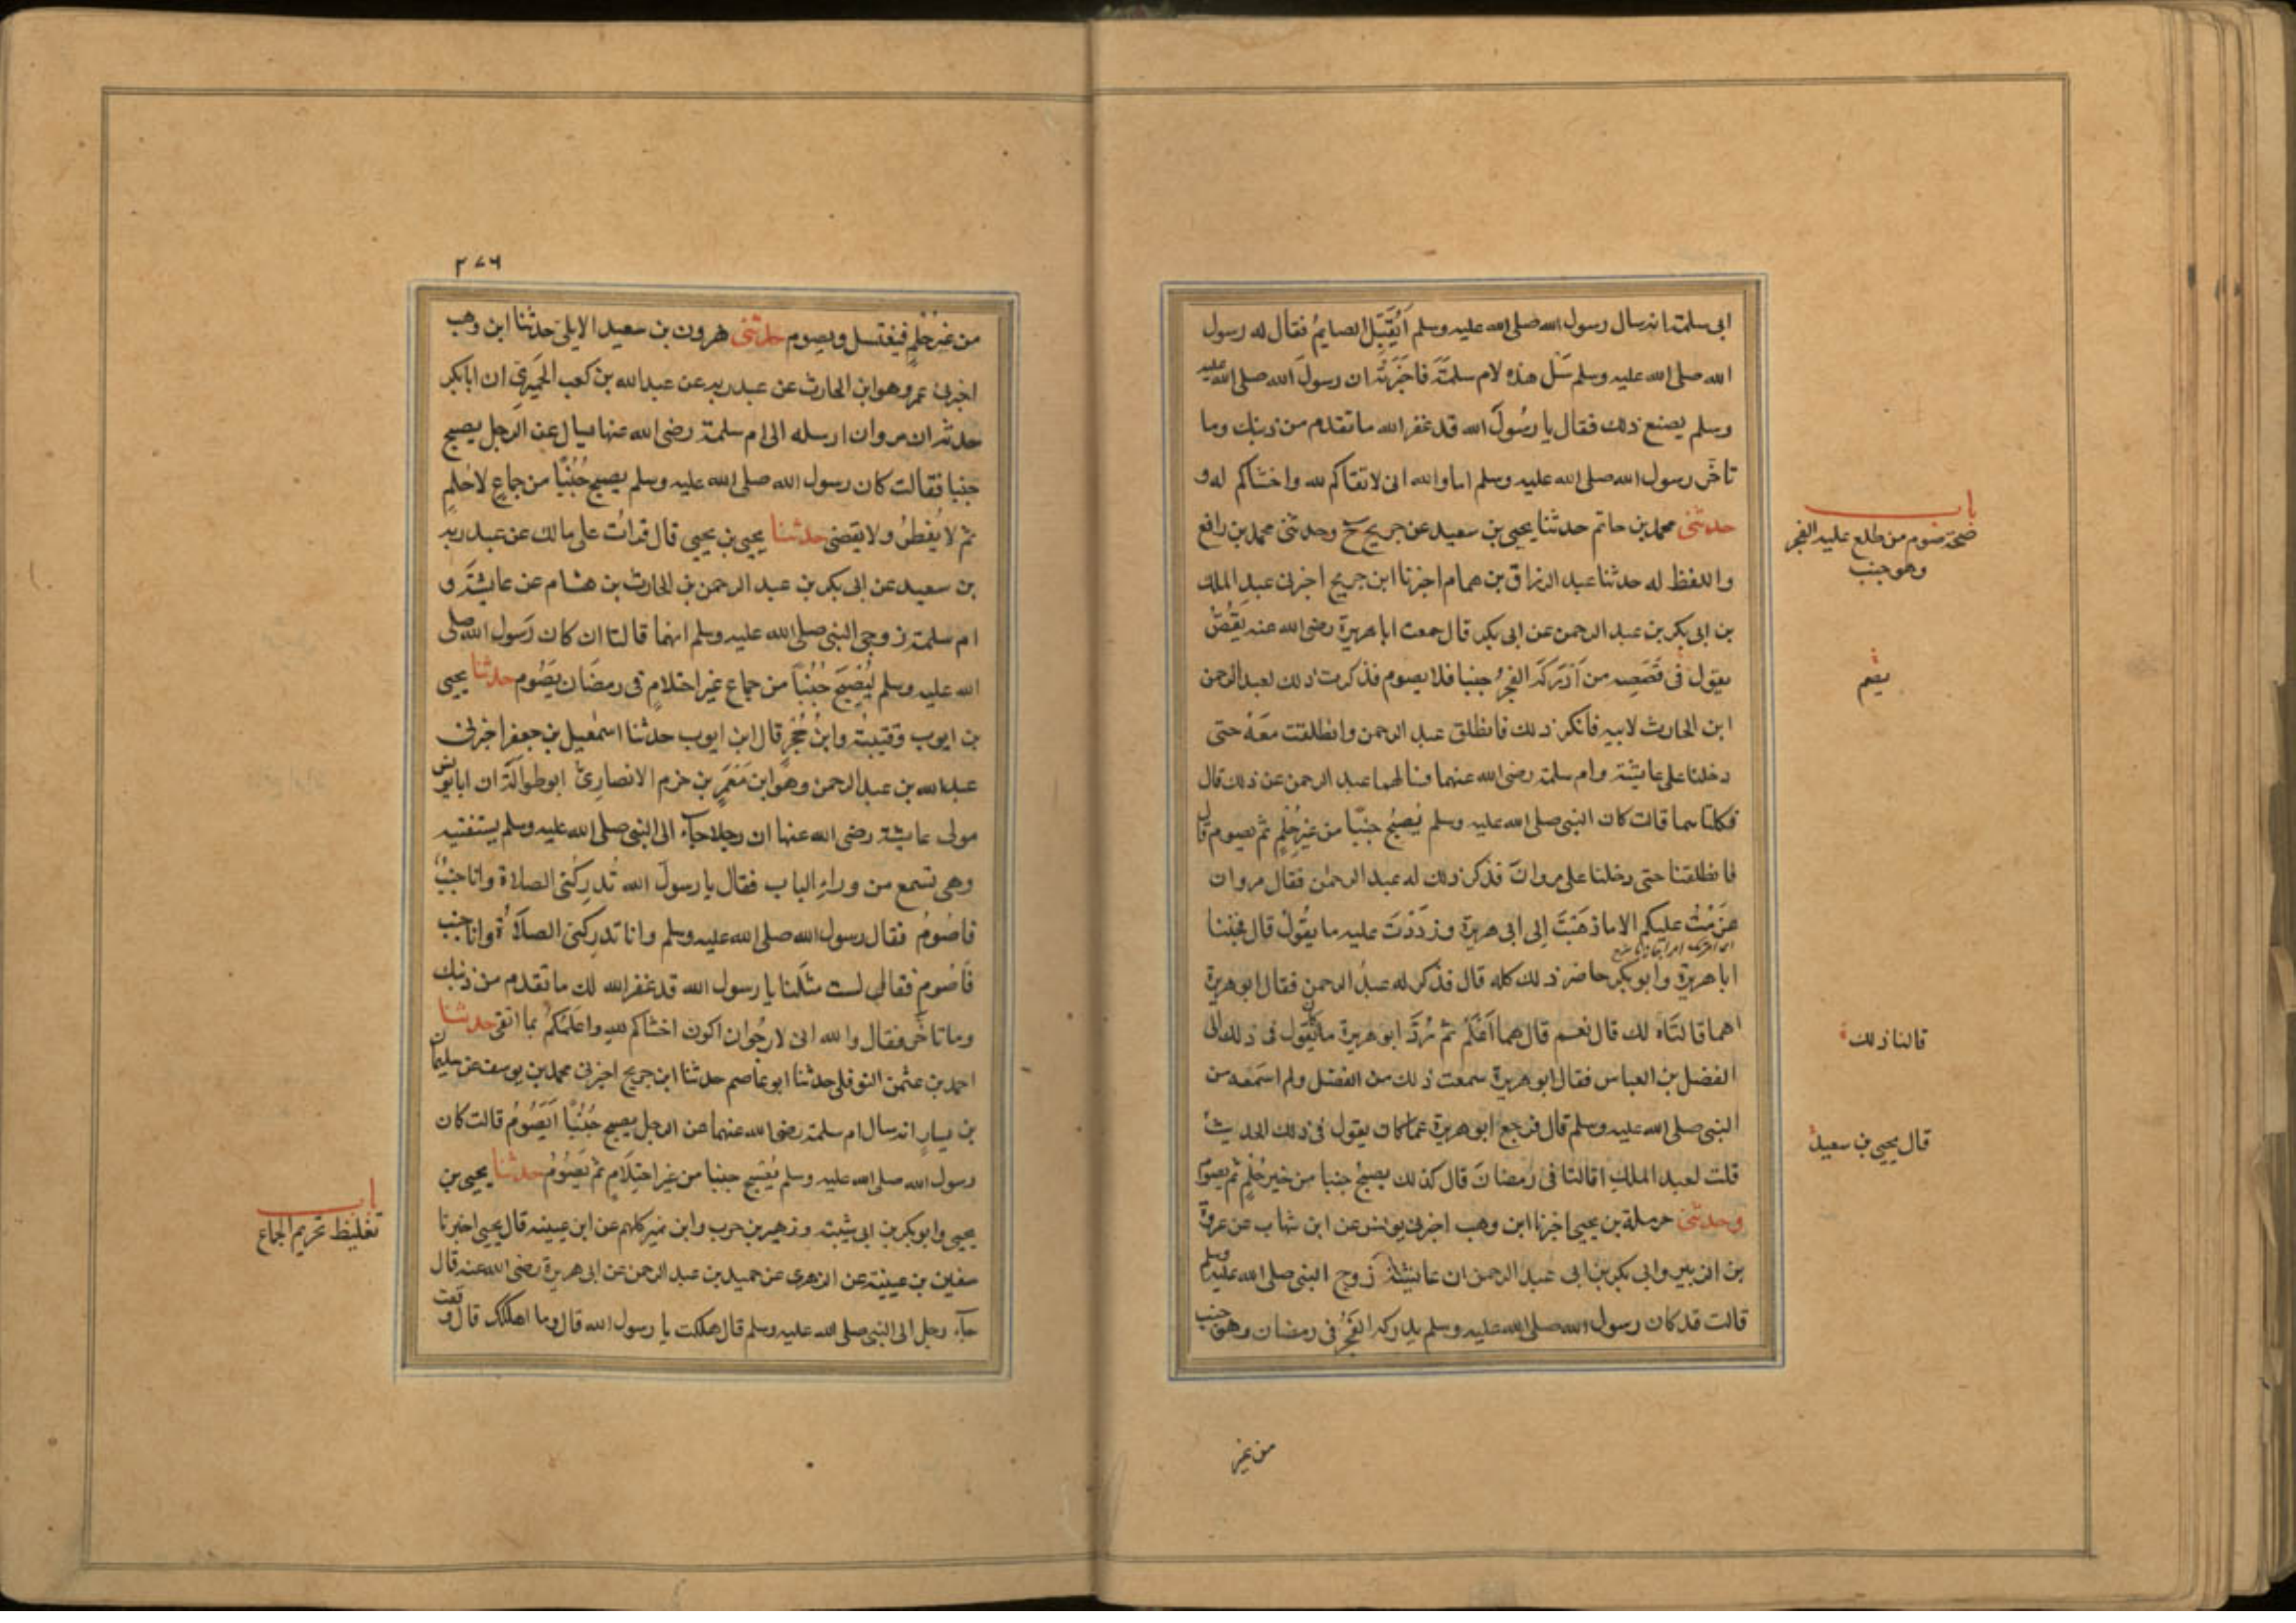 ابى سلمة انه سال رسول الله صلى الله عليه وسلم أَيُقَبِّل الصايمُ فقال له رسول
الله صلى الله عليه وسلم سَل هذه لام سلمةَ فاخبَرَتْه ان رسولَ الله صلى الله عليه
وسلم يصنع ذلك فقال يا رسُولَ الله قد غفر الله ما تقدم من ذنبك وما
تاخَر رسول الله صلى الله عليه وسلم اما والله انى لاتقاكم لله واخشاكم له و
حدثنى محمد بن حاتم حدثنا يحيى بن سعيد عن جريج ح وحدثنى محمد بن رافع
واللفظ له حدثنا عبد الرزاق بن همام اخبرنا ابن جريج اخبرنى عبد الملك
بن ابى بكر بن عبد الرحمن عن ابى بكر قال سمعت ابا هريرة رضى الله عنه يَقُصُّ
يقول فى قَصَصِه من أَدْرَكَه الفجرُ جنبا فلا يصوم فذكرت ذلك لعبد الرحمن
ابن الحارث لابيه فانكر ذلك فانطلق عبد الرحمن وانطلقت مَعَهُ حتى
دخلنا على عايشة وام سلمة رضى الله عنهما فسالهما عبد الرحمن عن ذلك قال
فكلتاهما قالت كان النبى صلى الله عليه وسلم يُصبُح جنبًا من غير حُلُمٍ ثم يصوم قال
فانطلقنا حتى دخلنا على مروانَ فذكر ذلك له عبد الرحمن فقال مروان
عَزَمْتُ عليكم الا ما ذهَبْتَ إلى ابى هريرة ورَدَدْتَ عليه ما يقُولُ قال فجئنا
ابا هريرة وابو بكر حاضر ذلك كله قال فذكر له عبدُ الرحمن فقال ابو هريرة
اهما قالتَاه لك قال نعم قال هما اَعْلَمُ ثم رُدَّ ابو هريرة ما كان يَقول فى ذلك الى
الفضل بن العباس فقال ابو هريرة سمعت ذلك من الفضل ولم اسمَعه من
النبى صلى الله عليه وسلم قال فرجع ابو هريرة عما كان يقول فى ذلك الحديث
قلت لعبد الملكِ اقالتا فى رَمضانَ قال كذلك يصبحُ جنبا من غير حُلُمٍ ثم يصوم
وحدثنى حرملة بن يحيى اخبرنا ابن وهب اخبرنى يونس عن ابن شهاب عن عروة
بن الزبير وابى بكر بن ابى عبد الرحمن ان عائشة زوج النبى صلى الله عليه وسلم
قالت قد كان رسول الله صلى الله عليه وسلم يدركه الفَجْرُ فى رمضان وهو جنب
من غير
باب
صحة صوم من طلع عليه الفجر
وهو جنب
قالتا ذلك
قال يحيى بن سعيد
٢٧٦
من غير حُلُمٍ فيغتسل ويصوم حدثنى هرون بن سعيد الايلى حدثنا ابن وهب
اخبرنى عمرو وهو ابن الحارث عن عبد ربه عن عبد الله بن كعب الحِمْيَرِى ان ابا بكر
حدثه ان مروان ارسله الى ام سلمة رضى الله عنها يسال عن الرجل يصبح
جنبا فقالت كان رسول الله صلى الله عليه وسلم يصبح جُنُبًا من جماعٍ لا حُلمٍ
ثم لا يُفطرُ ولا يقضى حدثنا يحيى بن يحيى قال قرأت على مالك عن عبد ربه
بن سعيد عن ابى بكر بن عبد الرحمن بن الحارث بن هشام عن عايشةَ و
ام سلمة زوجى النبى صلى الله عليه وسلم انهما قالتا ان كان رَسول الله صلى
الله عليه وسلم ليُصْبِحَ جُنُبًا من جماع غير احتلامٍ فى رمضَان يَصُوم حدثنا يحيى
بن ايوب وقتيبة وابنُ حُجْرٍ قال ابن ايوب حدثنا اسمعيل بن جعفر اخبرنى
عبد الله بن عبد الرحمن وهو ابن مَعْمَرِ بن حزم الانصارِىّ ابو طوالَةَ ان ابا يونس
مولى عايشة رضى الله عنها ان رجلا جاء الى النبى صلى الله عليه وسلم يستفتيه
وهى تسمع من وراء الباب فقال يا رسولَ الله تُدرِكُنى الصلاة وانا جنبٌ
فاصُومُ فقال رسول الله صلى الله عليه وسلم وانا تدرِكنى الصلاَةُ وانا جنب
فَاصُوم فقال لست مثلَنا يا رسول الله قد غفر الله لك ما تقدم من ذنبك
وما تاخَر فقال والله انى لارجُو ان اكون اخشاكم لله واعلَمَكمُ بما اتقى حدثنا
احمد بن عثمن النوفلى حدثنا ابو عاصم حدثنا ابن جريج اخبرنى محمد بن يوسف عن سليمان
بن يسارٍ انه سال ام سلمة رضى الله عنهما عن الرجل يصبح جُنُبًا أَيَصُومُ قالت كان
رسول الله صلى الله عليه وسلم يُصْبِح جنبا من غير احتِلَامٍ ثم يَصُومُ حدثنا يحيى بن
يحيى وابو بكر بن ابى شيبة وزهير بن حرب وابن نمير كلهم عن ابن عيينه قال يحيى اخبرنا
سفين بن عيينة عن الزهرى عن حميد بن عبد الرحمن عن ابى هريرة رضى الله عنه قال
جاء رجل الى النبى صلى الله عليه وسلم قال هلكت يا رسول الله قال وما اهلكك قال وقعت
باب
تغليظ تحريم الجماع